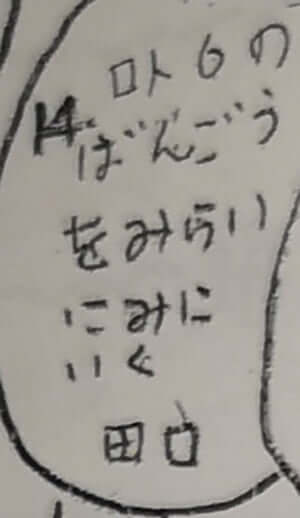 ロト6の
14.ばんごう
をみらい
にみに
いく
田口